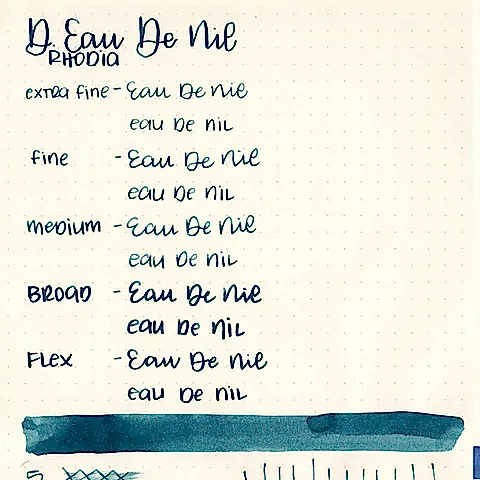 D. Eau De Nil
RHODIA
extra fine - Eau De Nil
eau De nil
fine - Eau De Nil
eau De nil
medium - Eau De Nil
eau De nil
BROAD - Eau De Nil
eau De nil
FLEX - Eau De Nil
eau De nil
5